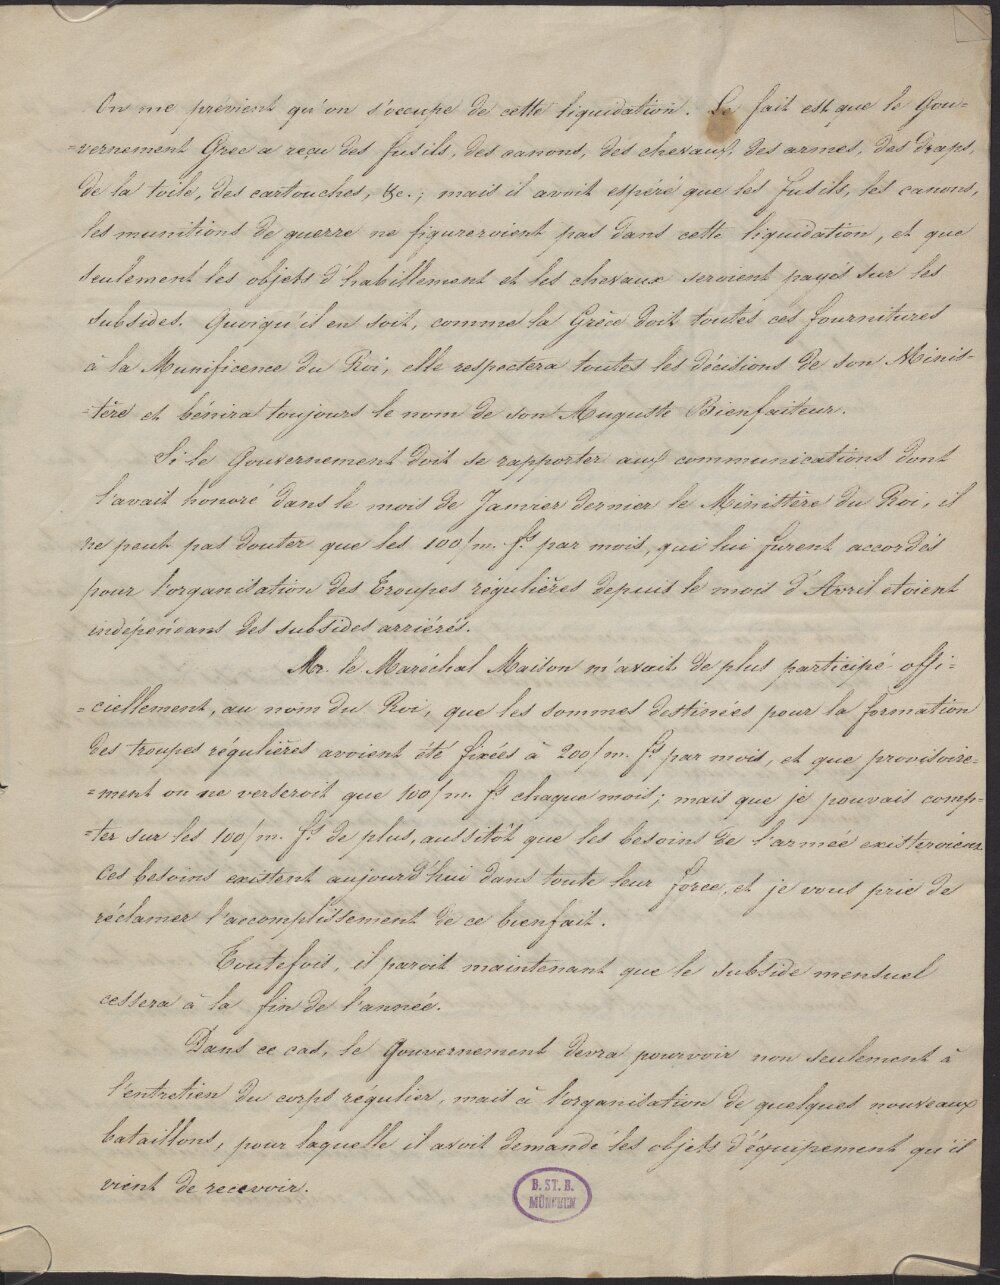 On me prévient qu'on s'occupe de cette liquidation. Le fait est que le Gou-
=vernement Grec a reçu des fusils, des canons, des chevaux, des armes, des draps,
de la toile, des cartouches, &c.; mais il avoit espéré que les fusils, les canons,
les munitions de guerre ne figureroient pas dans cette liquidation, et que
seulement les objets d'habillement et les chevaux seroient payés sur les
subsides. Quoiqu'il en soit, comme la Grèce doit toutes ces fournitures
à la Munificence du Roi, elle respectera toutes les décisions de son Minis-
-tère et bénira toujours le nom de son Auguste Bienfaiteur.
Si le Gouvernement doit se rapporter aux communications dont
l'avait honoré dans le mois de Janvier dernier le Ministère du Roi, il
ne peut pas douter que les 100/m. fs par mois, qui lui furent accordés
pour l'organisation des Troupes régulières depuis le mois d'Avril étoient
indépendans des subsides arriérés.
Mr. le Maréchal Maison m'avait de plus participé offi-
=ciellement, au nom du Roi, que les sommes destinées pour la formation
des troupes régulières avoient été fixées à 200/m. fs par mois, et que provisoire-
-ment on ne verseroit que 100/m. fs chaque mois; mais que je pouvais comp-
-ter sur les 100/m. fs de plus, aussitôt que les besoins de l'armée existeroient
Ces besoins existent aujourd'hui dans toute leur force, et je vous prie de
réclamer l'accomplissement de ce bienfait.
Toutefois, il paroit maintenant que le subside mensuel
cessera à la fin de l'année.
Dans ce cas, le Gouvernement devra pourvoir non seulement à
l'entretien du corps régulier, mais à l'organisation de quelques nouveaux
bataillons, pour laquelle il avoit demandé les objets d'équipement qu'il
vient de recevoir.
B. ST. B.
MÜNCHEN